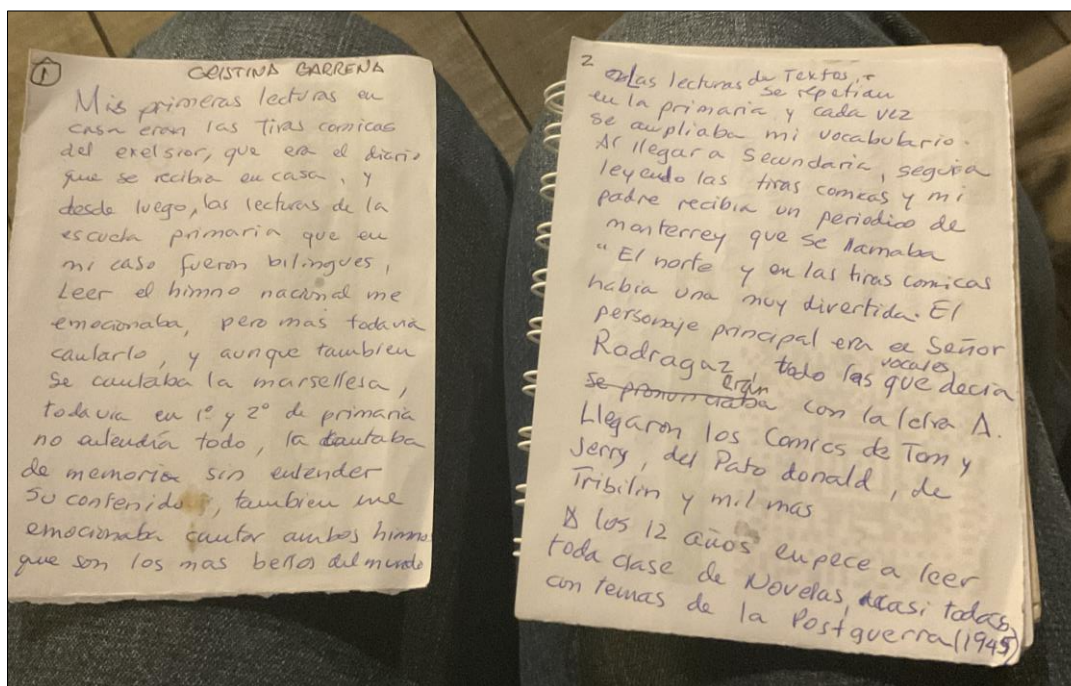 1
CRISTINA BARRENA
Mis primeras lecturas en
casa eran las tiras comicas
del exelsior, que era el diario
que se recibia en casa, y
desde luego, las lecturas de la
escuela primaria que en
mi caso fueron bilingues,
Leer el himno nacional me
emocionaba, pero mas todavia
cantarlo, y aunque tambien
se cantaba la marsellesa,
todavia en 1º y 2º de primaria
no entendia todo, la cantaba
de memoria sin entender
su contenido, tambien me
emocionaba cantar ambos himnos
que son los mas bellos del mundo
2
Las lecturas de Textos,
se repetian
en la primaria y cada vez
se ampliaba mi vocabulario.
Al llegar a Secundaria, seguia
leyendo las tiras comicas y mi
padre recibia un periodico de
monterrey que se llamaba
"El norte y en las tiras comicas
habia una muy divertida. El
personaje principal era el Señor
Radragaz, todo las vocales que decia
se pronunciaba eran con la letra A.
Llegaron los Comics de Tom y
Jerry, del Pato donald, de
Tribilin y mil mas
A los 12 años empece a leer
toda clase de Novelas, casi todas
con temas de la Postguerra (1945)